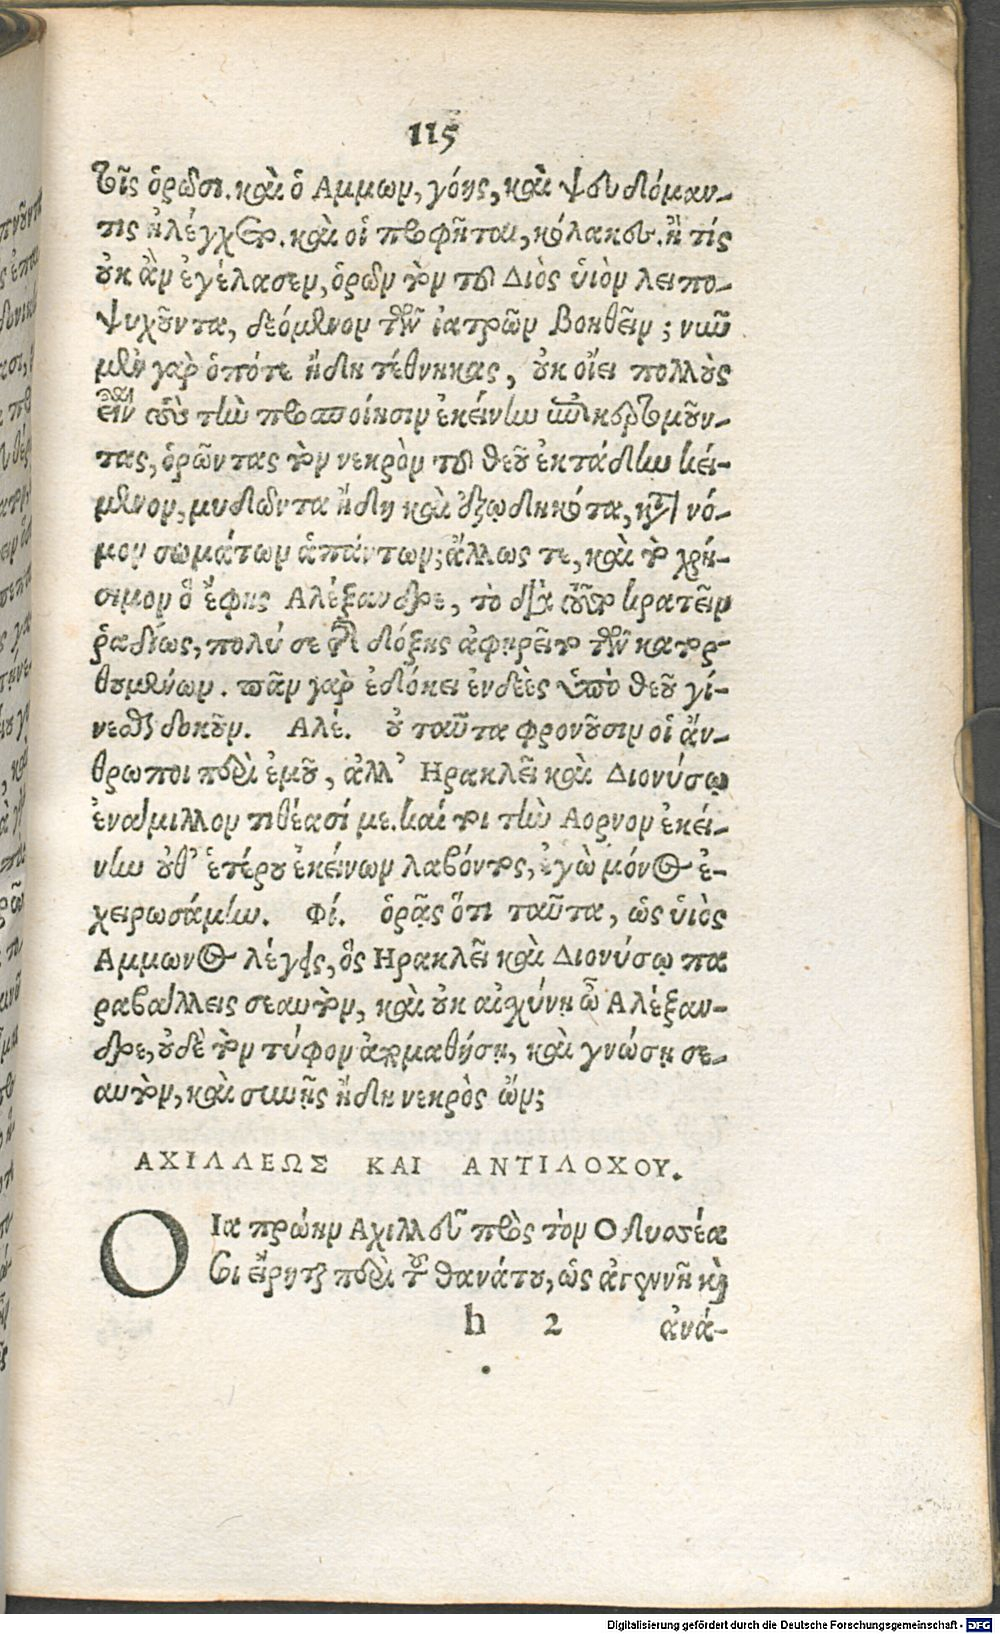 115
τοῖς ὁρῶσι. καὶ ὁ Αμμων, γόης, καὶ ψευδόμαν-
τις ἠλέγχετο. καὶ οἱ προφῆται, κόλακες. ἢ τίς
οὐκ ἂν ἐγέλασεν, ὁρῶν τὸν τοῦ Διὸς ὑιὸν λειπο-
ψυχοῦντα, δεόμενον τῶν ἰατρῶν βοηθεῖν; νῦν
μὲν γὰρ ὁπότε ἤδη τέθνηκας, οὐκ οἴει πολλοὺς
εἶναι τοὺς τὴν προσποίησιν ἐκείνην ἐπικερτομοῦν-
τας, ὁρῶντας τὸν νεκρὸν τοῦ θεοῦ ἐκτάδην κεί-
μενον, μυδῶντα ἤδη καὶ ἐξῳδηκότα, κατὰ νό-
μον σωμάτων ἁπάντων; ἄλλως τε, καὶ τὸ χρή-
σιμον ὃ ἔφης Αλέξανδρε, τὸ διὰ τοῦτο κρατεῖν
ῥαδίως, πολύ σε τῆς δόξης ἀφῃρεῖτο τῶν κατορ-
θουμένων. πᾶν γὰρ ἐδόκει ἐνδεὲς ὑπὸ θεοῦ γί-
νεσθαι δοκοῦν. Αλέ. οὐ ταῦτα φρονοῦσιν οἱ ἄν-
θρωποι περὶ ἐμοῦ, ἀλλ' Ηρακλεῖ καὶ Διονύσῳ
ἐνάμιλλον τιθέασί με. καίτοι τὴν Αορνον ἐκεί-
νην οὐθ' ἑτέρου ἐκείνων λαβόντος, ἐγὼ μόνος ἐ-
χειρωσάμην. Φί. ὁρᾷς ὅτι ταῦτα, ὡς ὑιὸς
Αμμωνος λέγεις, ὃς Ηρακλεῖ καὶ Διονύσῳ πα
ραβάλλεις σεαυτὸν, καὶ οὐκ αἰσχύνῃ ὦ Αλέξαν-
δρε, οὐδὲ τὸν τύφον ἀπομαθήσῃ, καὶ γνώσῃ σε-
αυτὸν, καὶ συνῇς ἤδη νεκρὸς ὤν;
ΑΧΙΛΛΕΩΣ ΚΑΙ ΑΝΤΙΛΟΧΟΥ.
ΟΙα πρώην Αχιλλεῦ πρὸς τὸν Οδυσσέα
σοι εἴρηται περὶ τοῦ θανάτου, ὡς ἀγεννῆ καὶ
h 2 ἀνά-
Digitalisierung gefördert durch die Deutsche Forschungsgemeinschaft - DFG